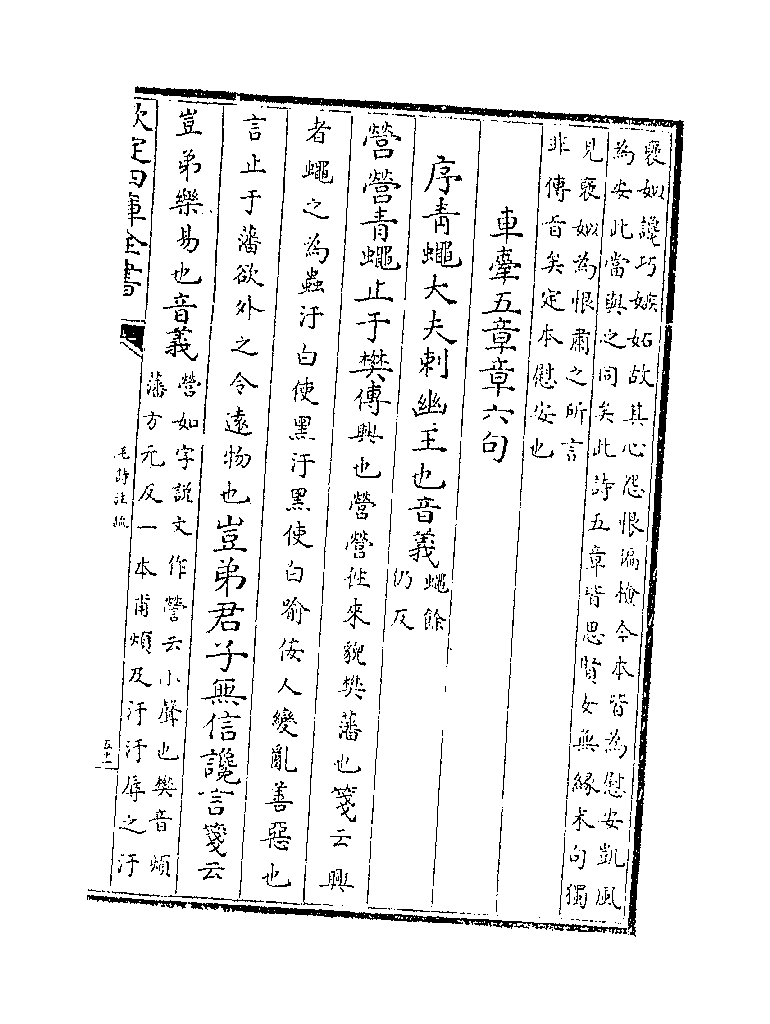 褒姒讒巧嫉妬故其心怨恨徧檢今本皆為慰安凱風
為安此當與之同矣此詩五章皆思賢女無緣末句獨
見褒姒為恨肅之所言
非傳旨矣定本慰安也
車舝五章章六句
序青蠅大夫刺幽王也音義蠅餘
仍反
營營青蠅止于樊傳興也營營徃來貌樊藩也箋云興
者蠅之為蟲汙白使黑汙黑使白喻佞人變亂善惡也
言止于藩欲外之令遠物也豈弟君子無信讒言箋云
豈弟樂易也音義營如字説文作營云小聲也樊音煩
藩方元反一本甫煩反汙汙辱之汙
欽定四庫全書
毛詩注疏
五十二